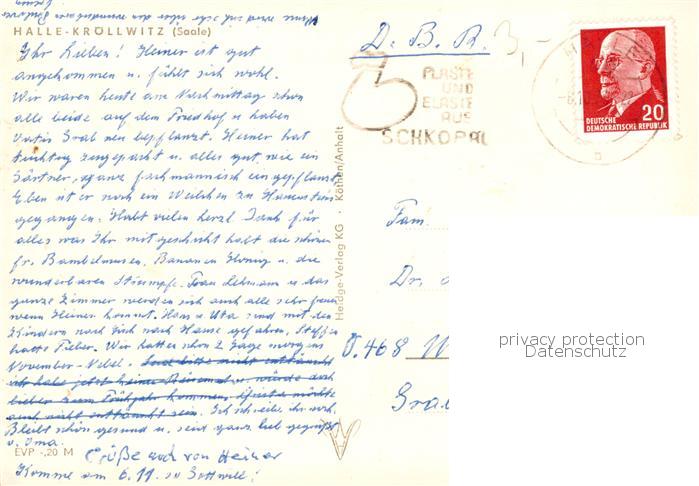 HALLE-KRÖLLWITZ (Saale)
Ihr Lieben! Heiner ist gut
angekommen u. fühlt sich wohl.
Wir waren heute am Nachmittag schon
alle beide auf dem Friedhof u. haben
Vatis Grab neu bepflanzt. Heiner hat
tüchtig zugepackt u. alles gut, wie ein
Gärtner, ganz fachmännisch eingepflanzt.
Eben ist er noch ein Weilchen zu
gegangen. Habt vielen herzl. Dank für
alles was Ihr mitgeschickt habt die schönen
fr. Bananen Honig u. die
wunderbaren Strümpfe. Frau Lehmann u. das
ganze Zimmer werden sich auch alle sehr freuen
wenn Heiner kommt. Hans u. Uta sind mit den
Kindern noch nach Hause gefahren, Steffen
hatte Fieber. Wir hatten schon 2 Tage morgens
November-Nebel. Seid bitte nicht enttäuscht
ich habe jetzt keine u. würde doch
lieber zum Frühjahr kommen, möchte
auch nicht enttäuscht sein. Ich schreibe Ihr noch.
Bleibt schön gesund u. seid ganz lieb gegrüßt
v. Oma.
EVP -,20 M
Grüße auch von Heiner
Komme am 6.11. so Gott will!
Heldge-Verlag KG · Köthen/Anhalt
D. B. R.
3,-
PLASTE
UND
ELASTE
AUS
SCHKOPAU
20
DEUTSCHE
DEMOKRATISCHE REPUBLIK
Fam.
Dr.
D.468
privacy protection
Datenschutz